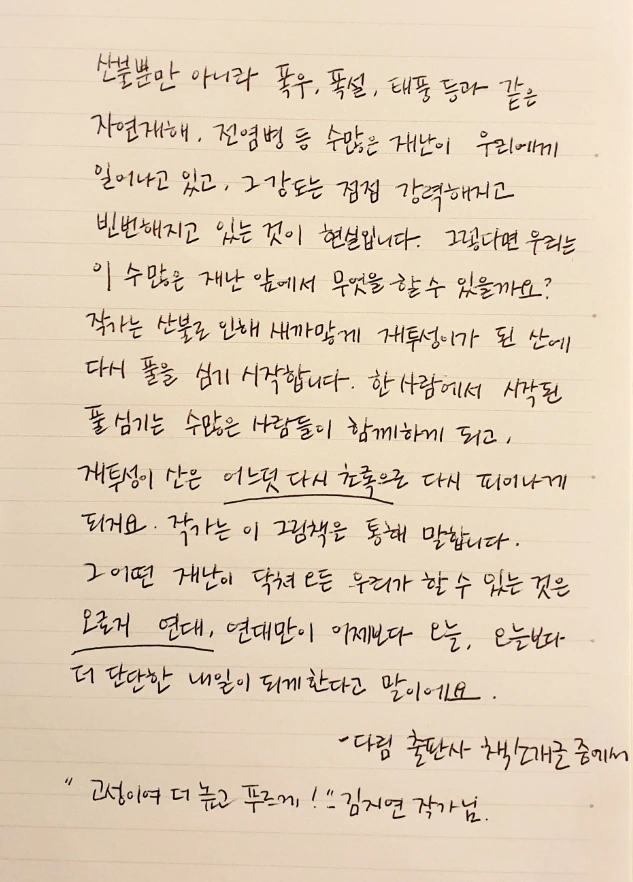 산불뿐만 아니라 폭우, 폭설, 태풍 등과 같은
자연재해, 전염병 등 수많은 재난이 우리에게
일어나고 있고, 그 강도는 점점 강력해지고
빈번해지고 있는 것이 현실입니다. 그렇다면 우리는
이 수많은 재난 앞에서 무엇을 할 수 있을까요?
작가는 산불로 인해 새까맣게 재투성이가 된 산에
다시 풀을 심기 시작합니다. 한 사람에서 시작된
풀 심기는 수많은 사람들이 함께하게 되고,
재투성이 산은 어느덧 다시 초록으로 다시 피어나게
되거요. 작가는 이 그림책은 통해 말합니다.
그 어떤 재난이 닥쳐 오든 우리가 할 수 있는 것은
오로지 연대, 연대만이 어제보다 오늘, 오늘보다
더 단단한 내일이 되게 한다고 말이에요.
- 다림 출판사 책소개글 중에서
"고성이여 더 높고 푸르게!" - 김지연 작가님.